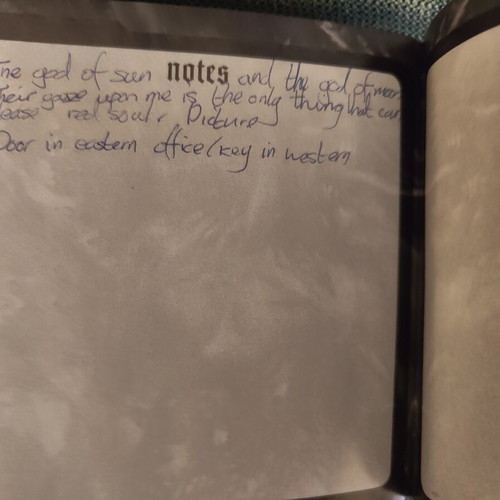 The god of sun notes and the god of moon
Their gaze upon me is the only thing that can
ease red soul. Pictures
Door in eastern office/key in western